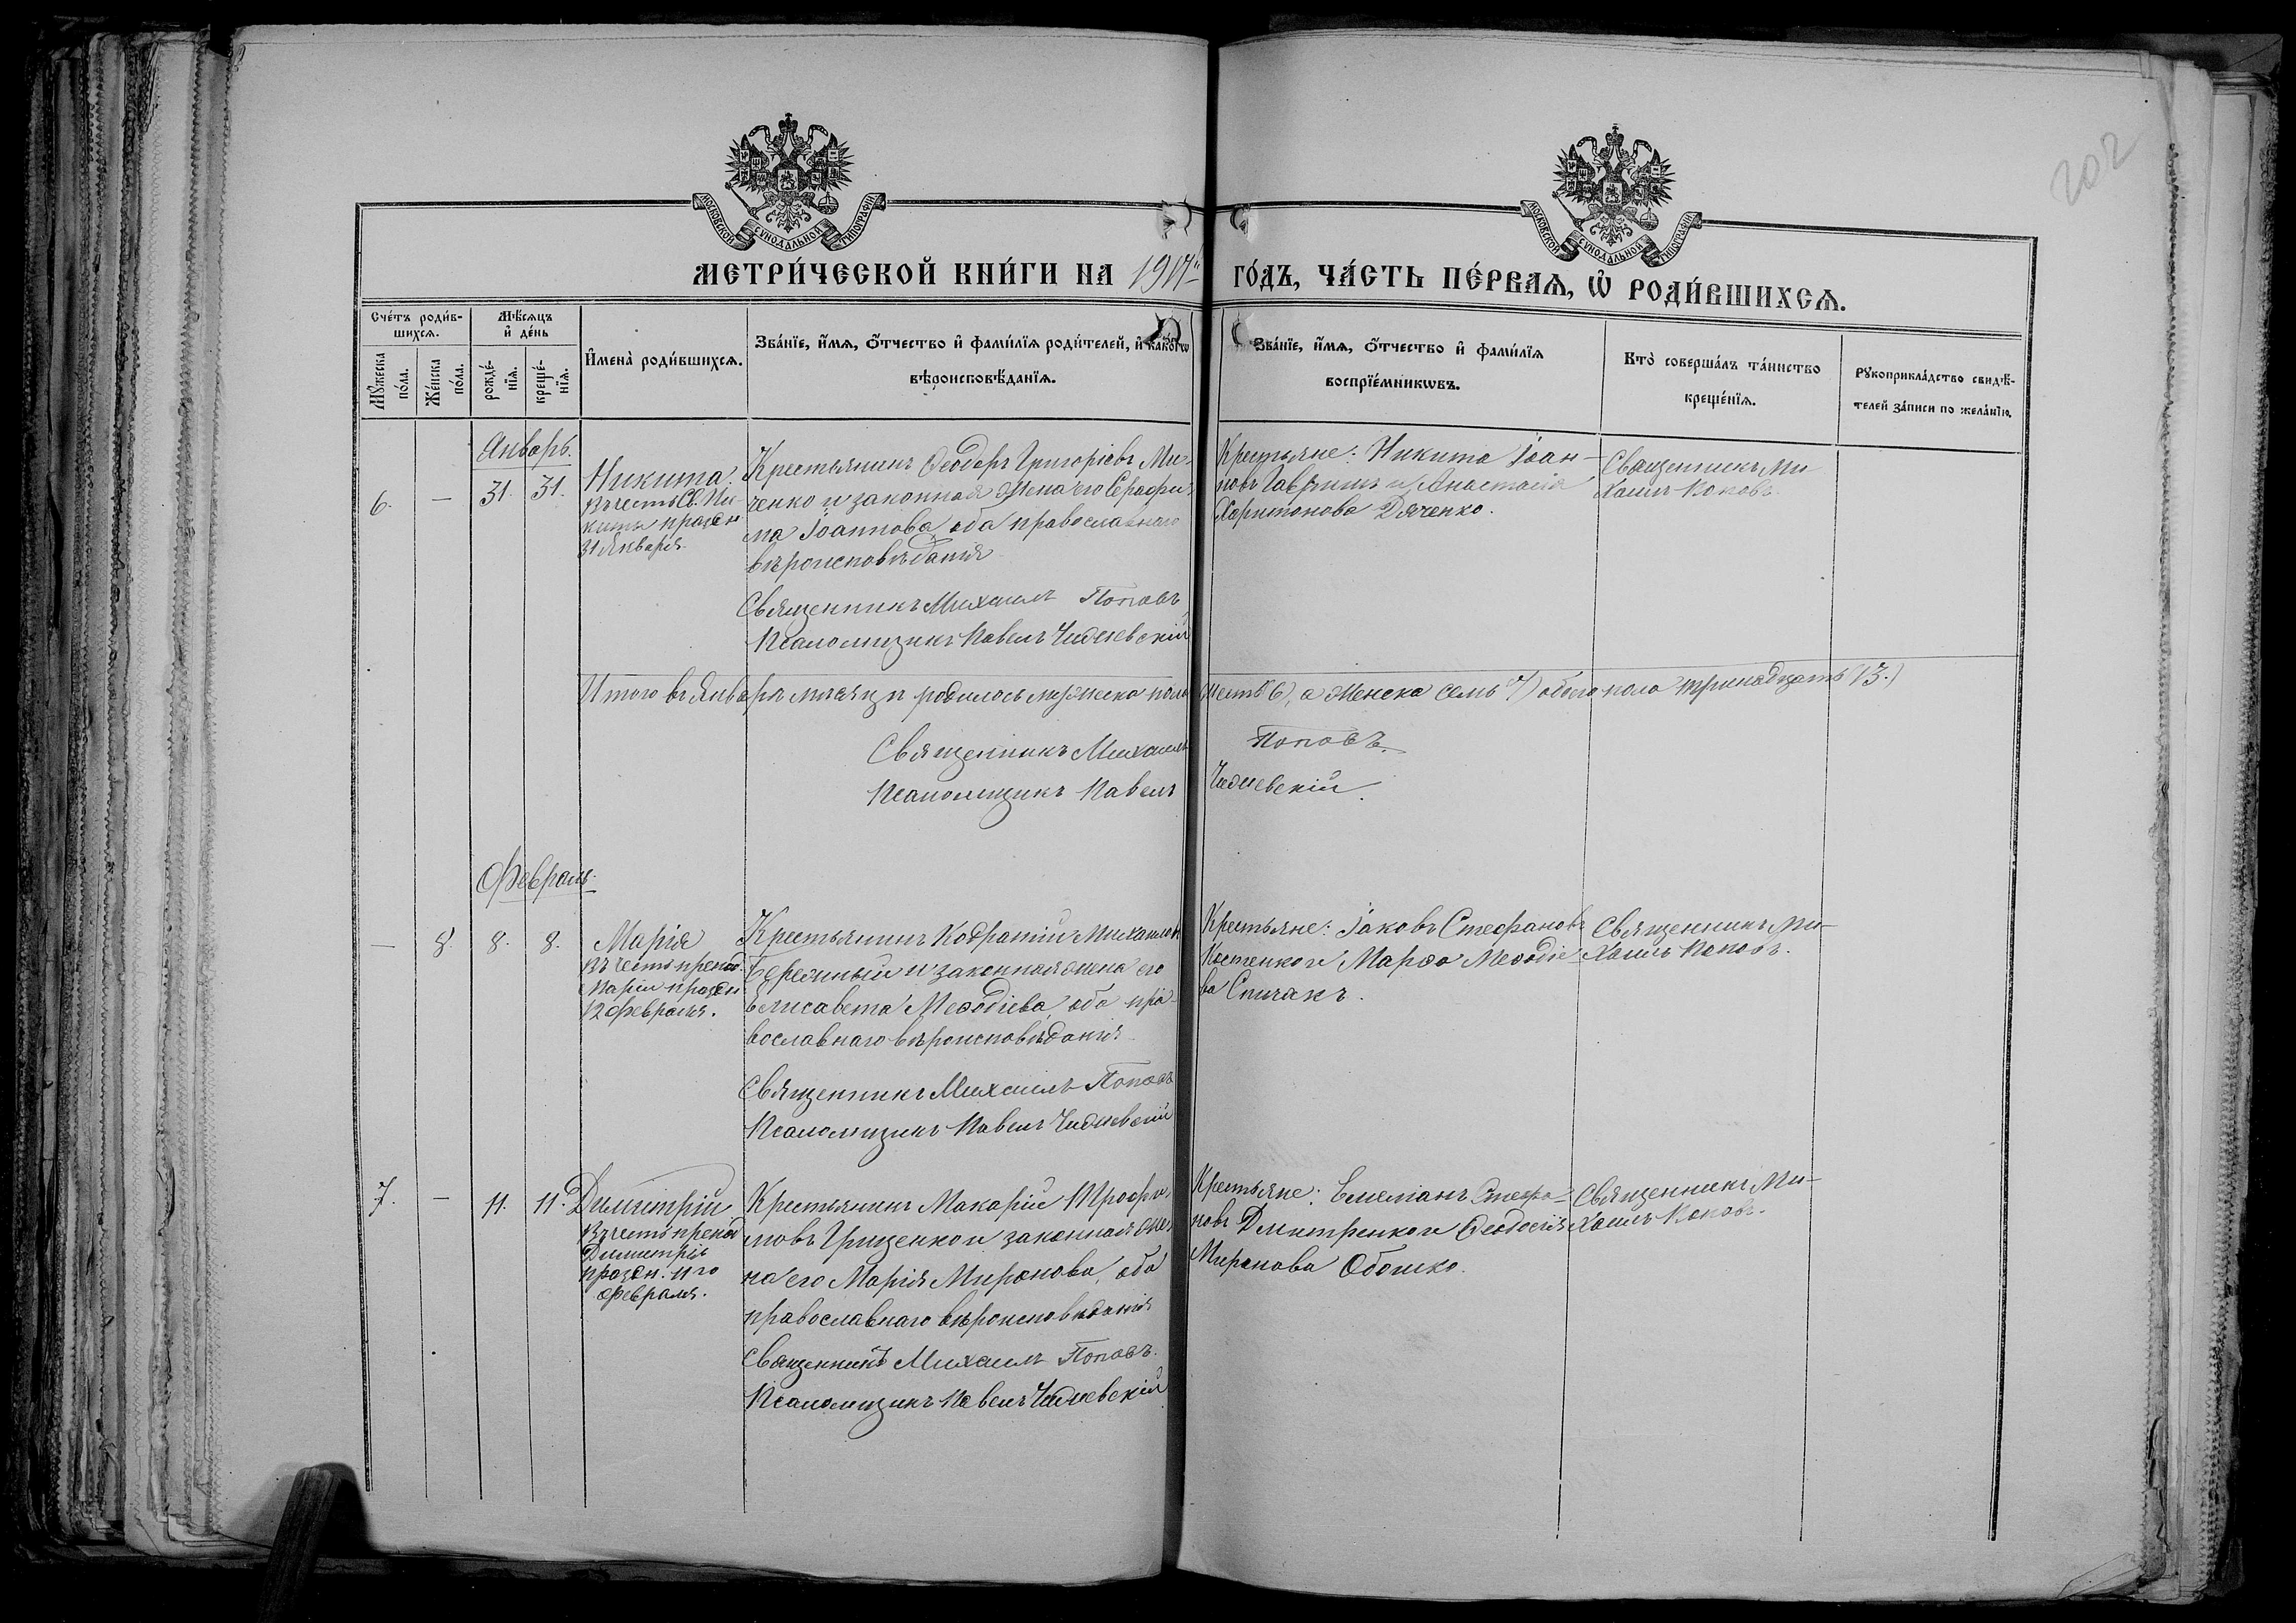 202
МОСКОВСКОЙ СѴНОДАЛЬНОЙ ТИПОГРАФІИ
МОСКОВСКОЙ СѴНОДАЛЬНОЙ ТИПОГРАФІИ
МЕТРИ́ЧЕСКОЙ КНИ́ГИ НА 1917й ГО́ДЪ, ЧА́СТЬ ПЕ́РВАѦ, Ѡ҆ РОДИ́ВШИХСѦ.
Сче́тъ роди́в-
шихсѧ.
Мꙋжеска по́ла.
Же́нска по́ла.
Мѣ́сѧцъ и҆ де́нь
рожде́-нїѧ.
креще́-нїѧ.
И҆мена̀ роди́вшихсѧ.
Зва́нїе, и҆́мѧ, ѻ҆́тчество и҆ фами́лїѧ роди́телей, и҆ како́гѡ
вѣроисповѣ́данїѧ.
Зва́нїе, и҆́мѧ, ѻ҆́тчество и҆ фами́лїѧ
воспрїе́мникѡвъ.
Кто̀ соверша́лъ та́инство
креще́нїѧ.
Рꙋкоприкла́дство свидѣ́-
телей за́писи по жела́нїю.
Январь.
6. — 31. 31.
Никита.
Въ честь Св. Ни-
киты праздн
31 Января.
Крестьянинъ Ѳеодоръ Григоріевъ Ми-
ченко и законная жена его Серафи-
ма Іоаннова, оба православнаго
вѣроисповѣданія
Священникъ Михаилъ Поповъ
Псаломщикъ Павелъ Чидневскій
Крестьяне: Никита Іоан-
новъ Гавришъ и Анастасія
Харитонова Дяченко.
Священникъ Ми
хаилъ Поповъ.
Итого въ Январѣ мѣсяцѣ родилось мужеска пола шесть (6), а женска семь (7) обоего пола тринадцать (13.)
Священникъ Михаилъ Поповъ.
Псаломщикъ Павелъ Чидневскій.
Февраль.
— 8. 8. 8.
Марія
Въ честь препод.
Маріи праздн
12 февраля.
Крестьянинъ Кодратій Михаиловъ
Беремный и законная жена его
Елисавета Меѳодіева, оба пра-
вославнаго вѣроисповѣданія
Священникъ Михаилъ Поповъ
Псаломщикъ Павелъ Чидневскій
Крестьяне: Іаковъ Стефановъ
Костенко и Марѳа Меѳодіе-
ва Спичакъ.
Священникъ Ми-
хаилъ Поповъ.
7. — 11. 11.
Димитрій
Въ честь препод
Димитрія
праздн. 11го
февраля.
Крестьянинъ Макарій Трофи-
мовъ Грищенко и законная же-
на его Марія Миронова, оба
православнаго вѣроисповѣданія
Священникъ Михаилъ Поповъ.
Псаломщикъ Павелъ Чидневскій
Крестьяне: Емеліанъ Стефа-
новъ Дмитренко и Ѳеодосія
Миронова Обошко.
Священникъ Ми-
хаилъ Поповъ.